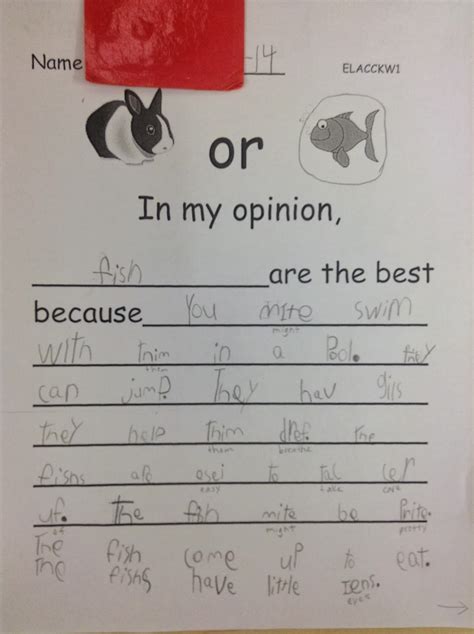 Name -14 ELACCKW1
or
In my opinion,
fish are the best
because You mite swim
might
with thim in a Pool. they
them
can jump. They hav gils
they help thim dref. the
them breathe
fishs are esei to tac cer
easy take care
uf. The fish mite be prite.
of might pretty
The fish come up to eat.
The fishs have little Iens.
eyes